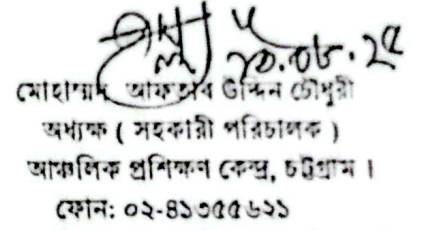 ২০.০৮.২৫
মোহাম্মদ আফতাব উদ্দিন চৌধুরী
অধ্যক্ষ ( সহকারী পরিচালক )
আঞ্চলিক প্রশিক্ষণ কেন্দ্র, চট্টগ্রাম ।
ফোন: ০২-৪১৩৫৫৬২১